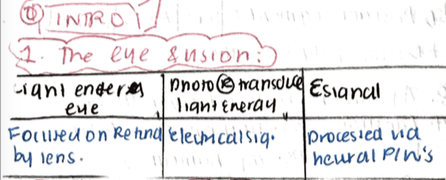 ① INTRO
1. The eye & vision:
Light enters eye | photo Ⓡ transduce light Energy | Esianal
Focused on Retina by lens. | Electrical sig. | Processed via neural P/w's